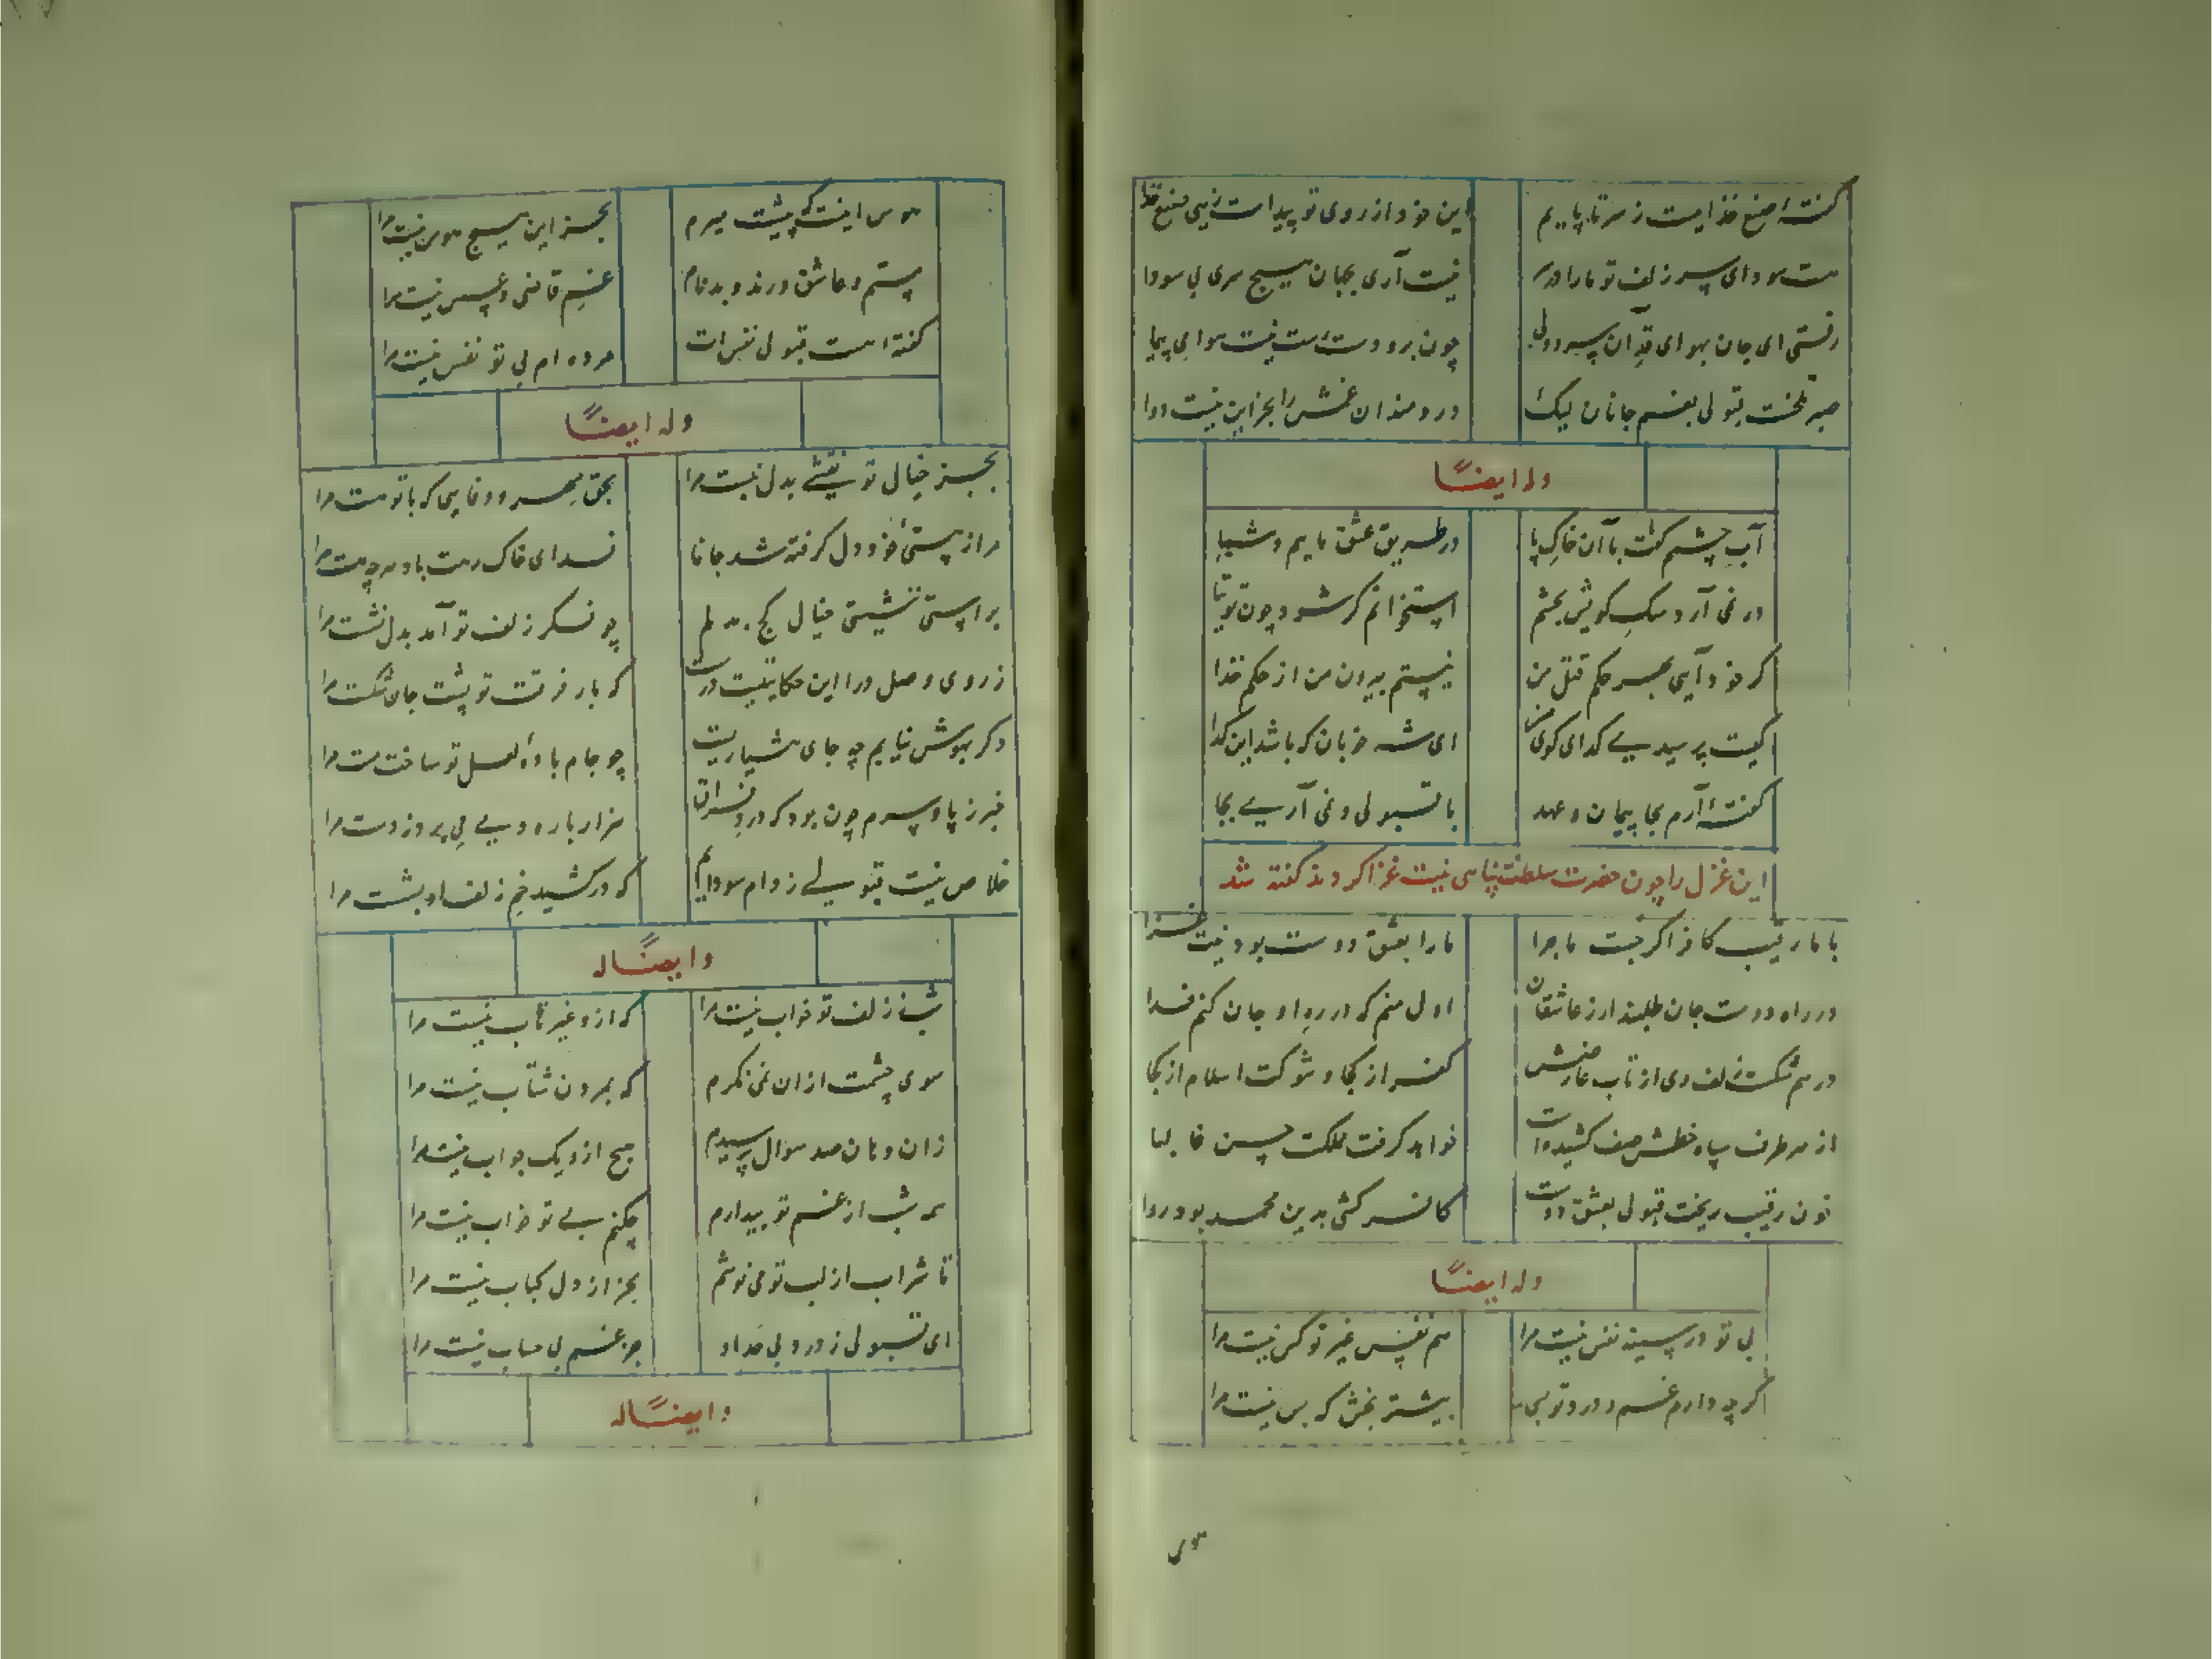 گفته صنع خدایست ز سر تا پایم
این خود از روی تو پیداست زهی صنع خدا
هست سودای سر زلف تو ما را در سر
نیست آری بجهان هیچ سری بی سودا
رفتی ای جان بهوای قد آن سرو ولی
چون برو دست نیست هوا می پیما
صبر تلخست قبولی بغم جانان لیک
دردمندان غمش را بجز این نیست دوا
وله ایضاً
آب چشم کشت با آن خاک پا
در طریق عشق ماییم و شما
در نمی آرد سگ کویش بچشم
استخوانم گر شود چون توتیا
گر خود آیی بهر حکم قتل من
نیستم بیرون من از حکم خدا
کیست پرسیدی گدای کوی من
ای شه خوبان که باشد این گدا
گفتهٔ آرم بجا پیمان و عهد
با قبولی و نمی آری بجا
این غزل را چون حضرت سلطنت پناهی نیت غزا کردند گفته شد
با ما رقیب کافر اگر جست ماجرا
ما را بعشق دوست بود نیت غزا
در راه دوست جان طلبند ار ز عاشقان
اول منم که در ره او جان کنم فدا
در هم شکست زلف وی از تاب عارضش
کفر از کجا و شوکت اسلام از کجا
از هر طرف سپاه خطش صف کشیده است
خواهد گرفت مملکت حسن غالبا
خون رقیب ریخت قبولی بعشق دوست
کافر کشی بدین محمد بود روا
وله ایضاً
بی تو در سینه نفس نیست مرا
هم نفس غیر تو کس نیست مرا
گرچه دارم غم و درد تو بسی
بیشتر بخش که بس نیست مرا
هوس اینست که پیشت میرم
بجز این هیچ هوس نیست مرا
مستم و عاشق و رند و بدنام
غم قاضی و عسس نیست مرا
گفته است قبولی نفس ات
مرده ام بی تو نفس نیست مرا
وله ایضاً
بجز خیال تو نقشی بدل نبست مرا
بحق مهر و وفایی که با تو هست مرا
مرا ز هستی خود دل گرفته شد جانا
فدای خاک رهت باد هرچه هست مرا
براستی ننشیند خیال کج بدلم
چو فکر زلف تو آمد بدل نشست مرا
ز روی وصل ورا این حکایتیست درست
که بار فرقت تو پشت جان شکست مرا
دگر بهوش نیایم چه جای هشیاریست
چو جام بادهٔ لعل تو ساخت مست مرا
خبر ز پا و سرم چون بود که درد فراق
هزار باره دمی می برد ز دست مرا
خلاص نیست قبولی ز دام سودایم
که در کشید خم زلف او بشست مرا
وایضاً له
شب ز زلف تو خواب نیست مرا
که ازو غیر تاب نیست مرا
سوی چشمت از آن نمی نگرم
که بمردن شتاب نیست مرا
زان دهان صد سوال پرسیدم
هیچ ازو یک جواب نیست مرا
همه شب از غم تو بیدارم
چکنم بی تو خواب نیست مرا
تا شراب از لب تو می نوشم
بجز از دل کباب نیست مرا
ای قبولی ز درد بی حد او
جز غم بی حساب نیست مرا
وایضاً له